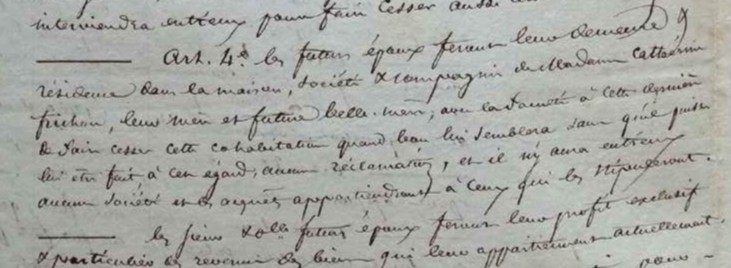 interviendra entreux pour fair cesser aussi
Art. 4e les futurs époux feront leur demeure &
résidence dans la maison, société & compagnie de Madame Catherine
frichou, leur mère et future belle-mère, avec la faculté à cette dernière
de fair cesser cette cohabitation quand bon lui semblera sans qu'il puisse
lui être fait à cet égard, aucune réclamation, et il n'y aura entreux
aucune société et les acquets appartiendront à ceux qui les stipuleront.
les sieur & dlle futurs époux feront leur profit exclusif
& particulier des revenus des biens qui leur appartiennent actuellement